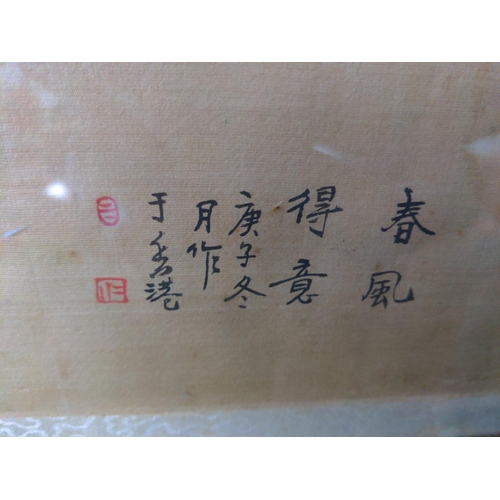 春風
得意
庚子冬
月作
于香港